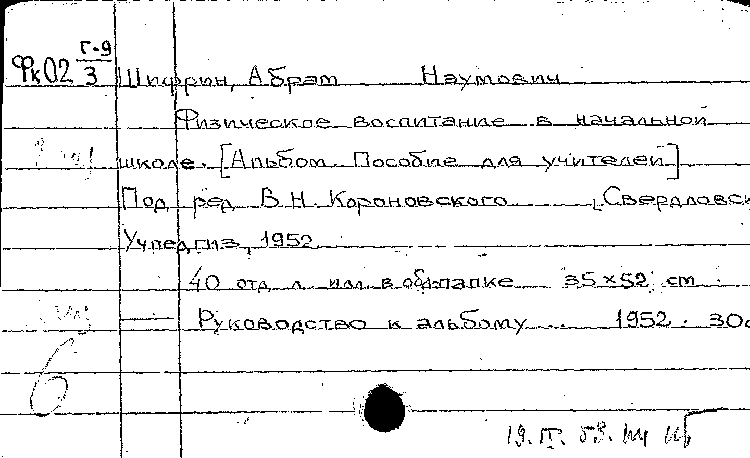 Фк02 Г-9/3 Шифрин, Абрам Наумович
Физическое воспитание в начальной
школе. [Альбом. Пособие для учителей]
Под ред В.Н. Короновского [Свердловск
Учпедгиз, 1952
40 отд л. илл. в обл.папке 35×52 cm.
Руководство к альбому... 1952. 30с
6
19. IV. 53.